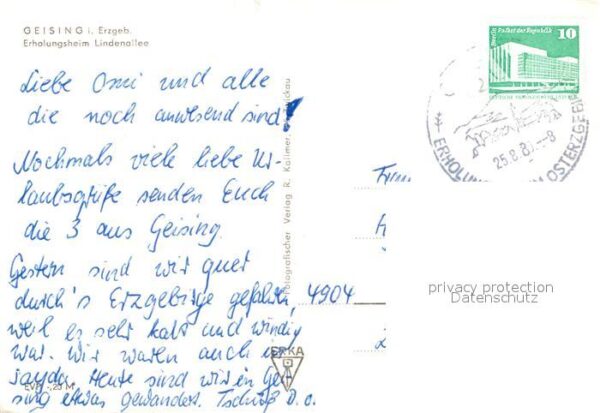 GEISING i. Erzgeb.
Erholungsheim Lindenallee
Liebe Omi und alle
die noch anwesend sind!
Nochmals viele liebe Ur-
laubsgrüße senden Euch
die 3 aus Geising.
Gestern sind wir quer
durch's Erzgebirge gefahren,
weil es sehr kalt und windig
war. Wir waren auch in
Sayda. Heute sind wir in Gei-
sing etwas gewandert. Tschüß D. O.
EVP -,25 M
Fotografischer Verlag R. Kallmer, Zwickau
ERKA
Palast der Republik
10
25.8.8
-8
ERHOLUNG
OSTERZGEB
Frau
4904
privacy protection
Datenschutz